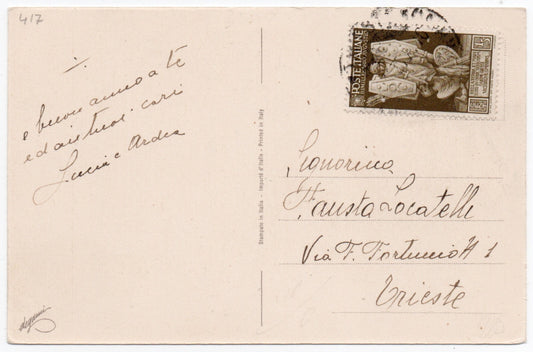 417
e buon anno a te
ed ai tuoi cari
Lucia e Ardea
Stampato in Italia - Importé d'Italie - Printed in Italy
POSTE ITALIANE
Signorina
Fausta Locatelli
Via F. Fortunio N 1
Trieste